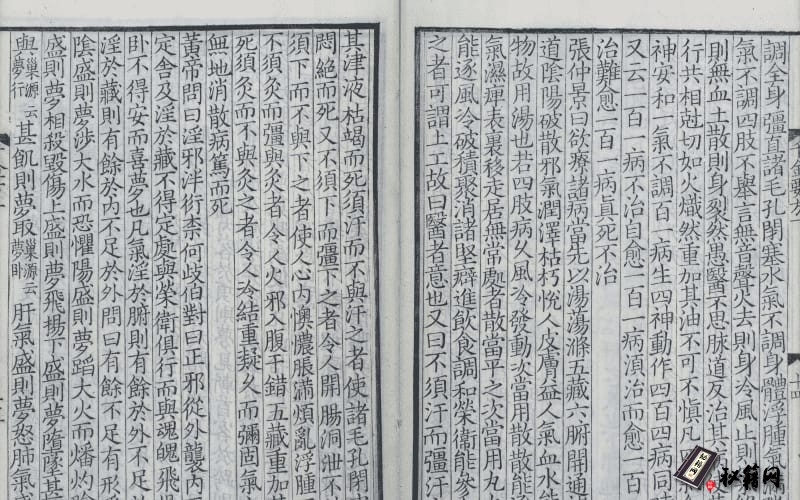 調全身彊直諸毛孔閉塞水氣不調身體浮腫氣
氣不調四肢不舉言無音聲火去則身冷風止則
則無血土散則身裂然愚醫不思脉道反治其
行共相尅切如火熾然重加其油不可不慎凡
神安和一氣不調百一病生四神動作四百四病同
又云一百一病不治自愈一百一病湏治而愈一百
治難愈一百一病眞死不治
張仲景曰欲療諸病當先以湯蕩滌五藏六腑開通
道陰陽破散邪氣潤澤枯朽悅人皮膚益人氣血水能
物故用湯也若四肢病乆風冷發動次當用散散能
氣濕痺表裏移走居無常處者散當平之次當用丸
能逐風冷破積聚消諸堅癖進飲食調和榮衛能叅
之者可謂上工故曰醫者意也又曰不須汗而彊汗
其津液枯竭而死須汗而不與汗之者使諸毛孔閉
悶絕而死又不須下而彊下之者令人開腸洞泄不
須下而不與下之者使人心内懊憹脹滿煩亂浮腫
不須灸而彊與灸者令人火邪入腹干錯五藏重加
死須灸而不與灸之者令人冷結重凝乆而彌固氣
無地消散病篤而死
黃帝問曰淫邪泮衍柰何歧伯對曰正邪從外襲内
定舍及淫於藏不得定處與榮衛俱行而與魂魄飛
卧不得安而喜夢也凡氣淫於腑則有餘於外不足
淫於藏則有餘於内不足於外問曰有餘不足有形
陰盛則夢涉大水而恐懼陽盛則夢蹈大火而燔灼
盛則夢相殺毀傷上盛則夢飛揚下盛則夢墮墜甚
與巢源云夢行甚飢則夢取巢源云夢卧肝氣盛則夢怒肺氣
十四
秘籍网